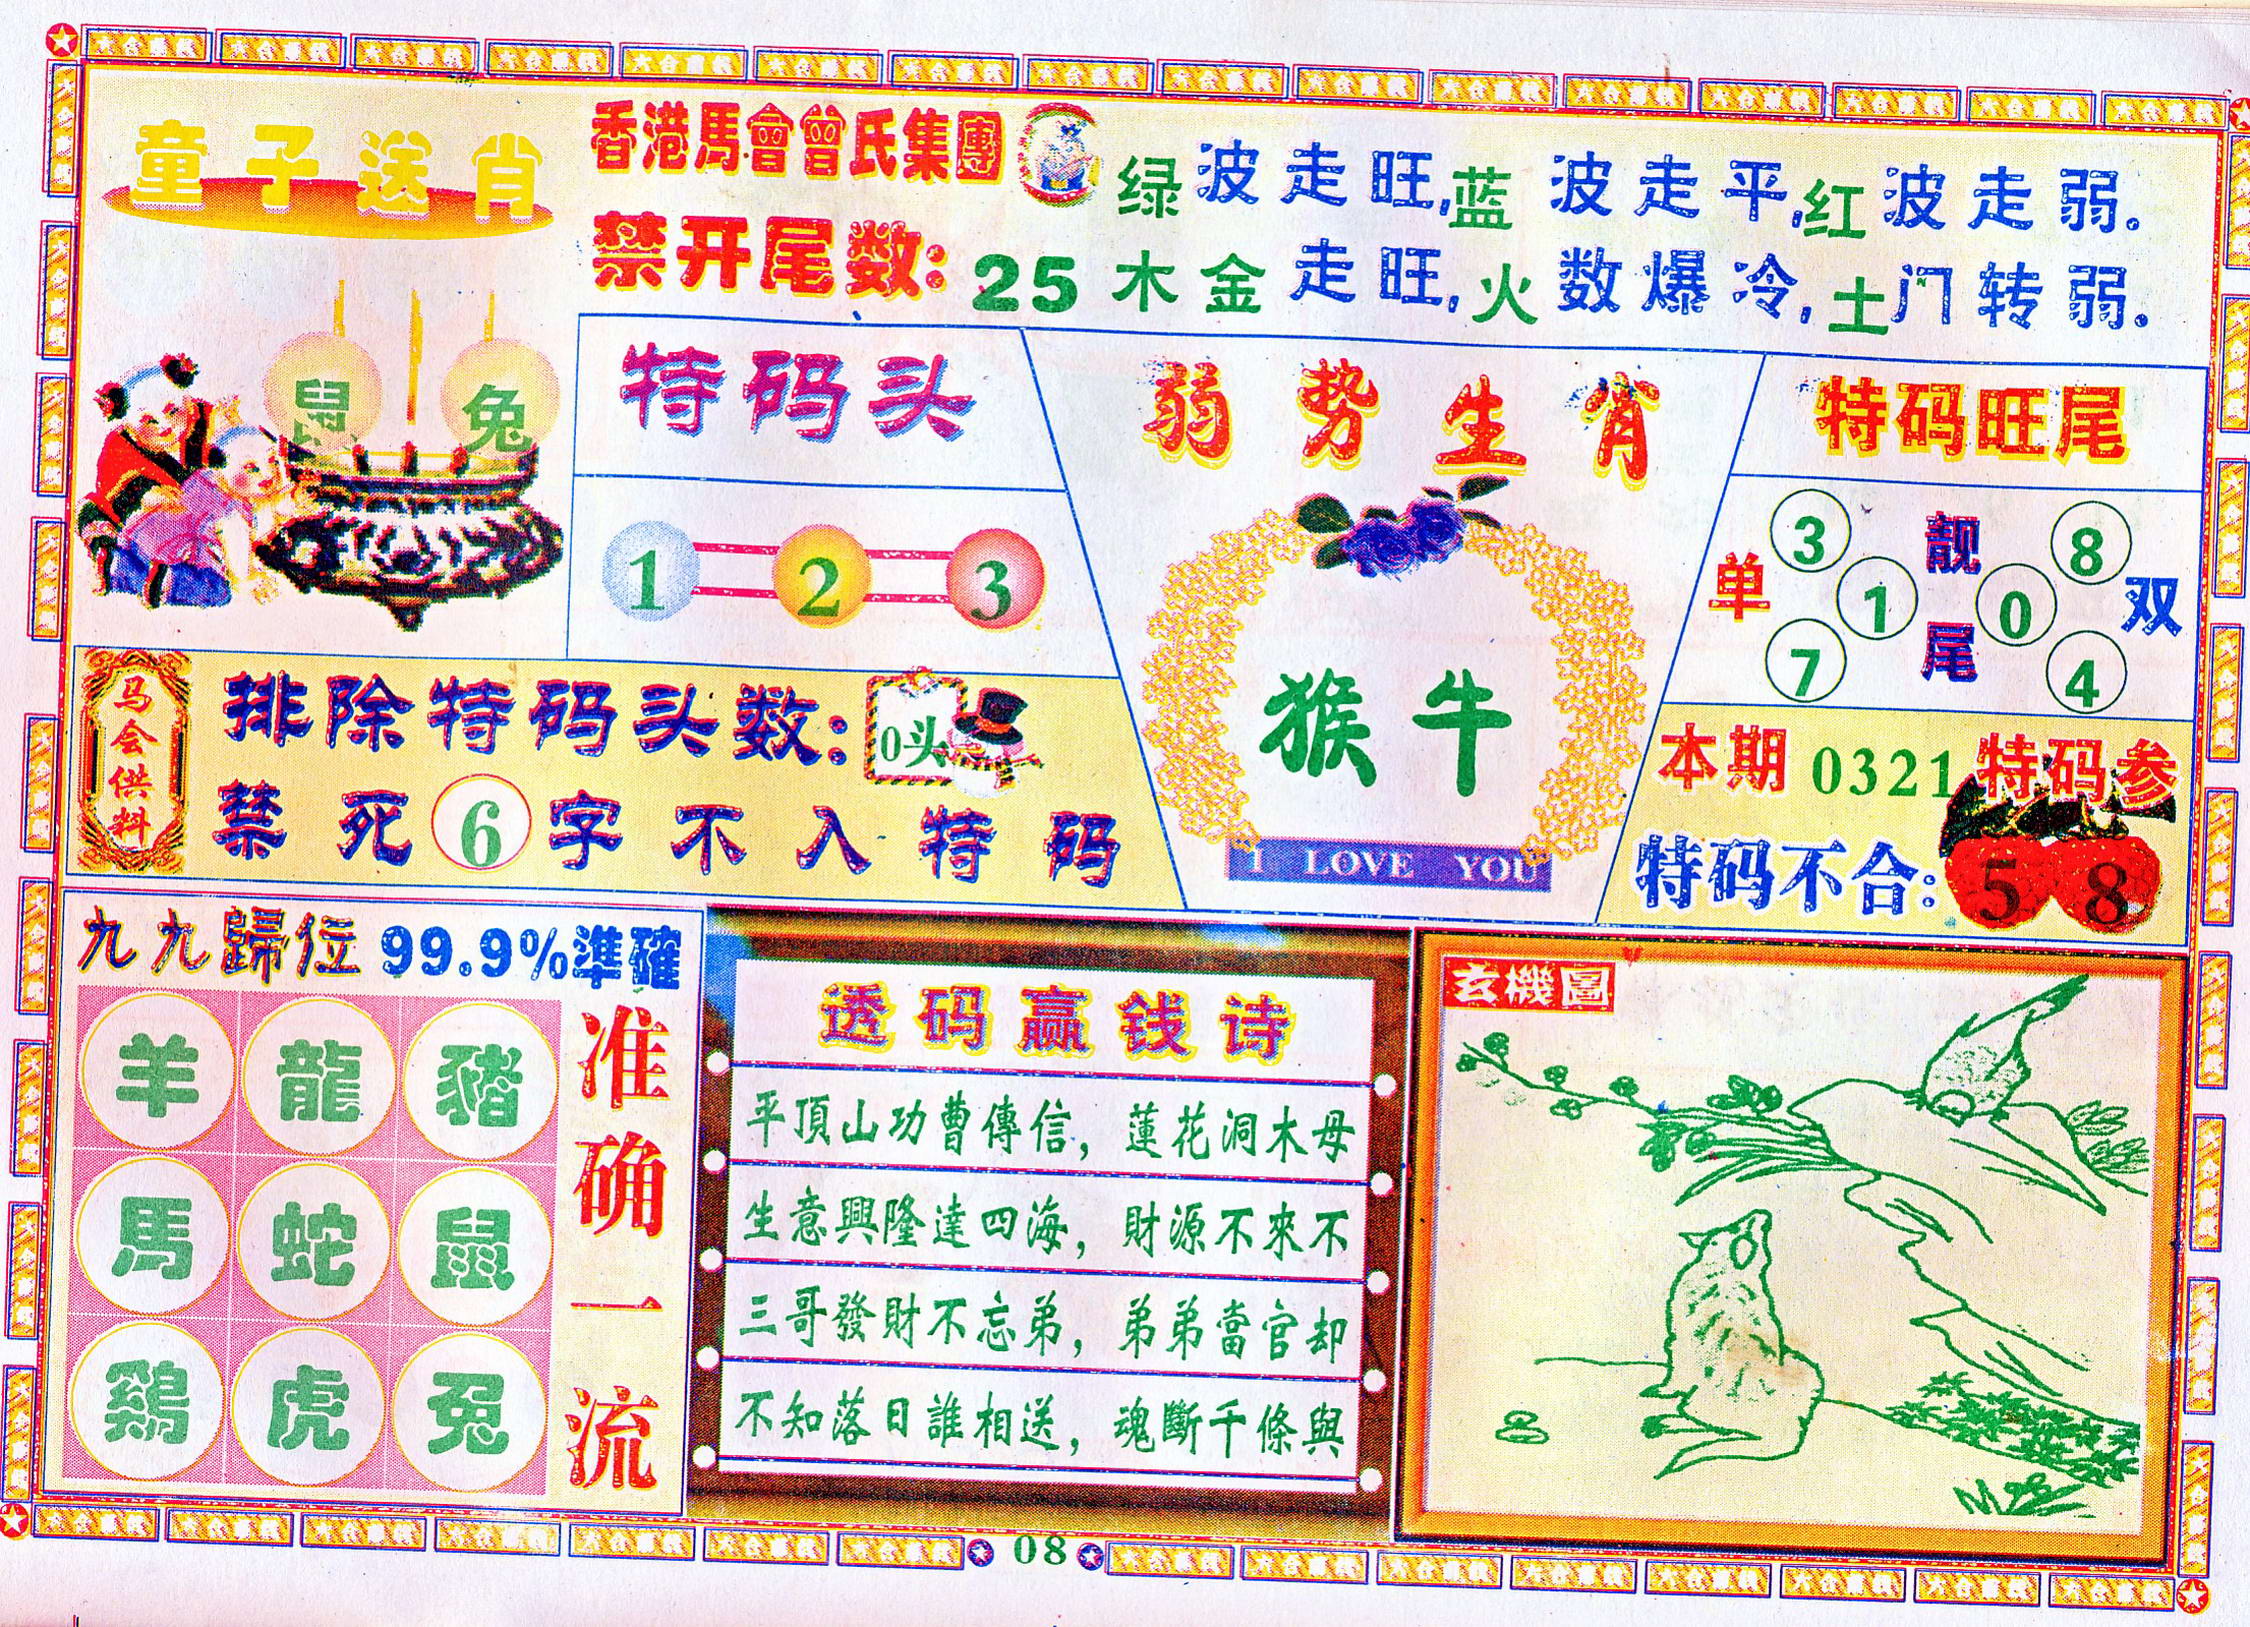 童子送肖
香港馬會曾氏集團
禁开尾数:25
绿波走旺,蓝波走平,红波走弱.
木金走旺,火数爆冷,土门转弱.
鼠 兔
特码头
1 2 3
弱势生肖
猴牛
I LOVE YOU
特码旺尾
单 3 1 7
靓尾
8 0 4 双
马会供料
排除特码头数:0头
禁死6字不入特码
本期0321特码参
特码不合:58
九九歸位99.9%準確
羊 龍 豬
馬 蛇 鼠
鷄 虎 兔
准确一流
透码赢钱诗
平頂山功曹傳信,蓮花洞木母
生意興隆達四海,財源不來不
三哥發財不忘弟,弟弟當官却
不知落日誰相送,魂斷千條與
玄機圖
08